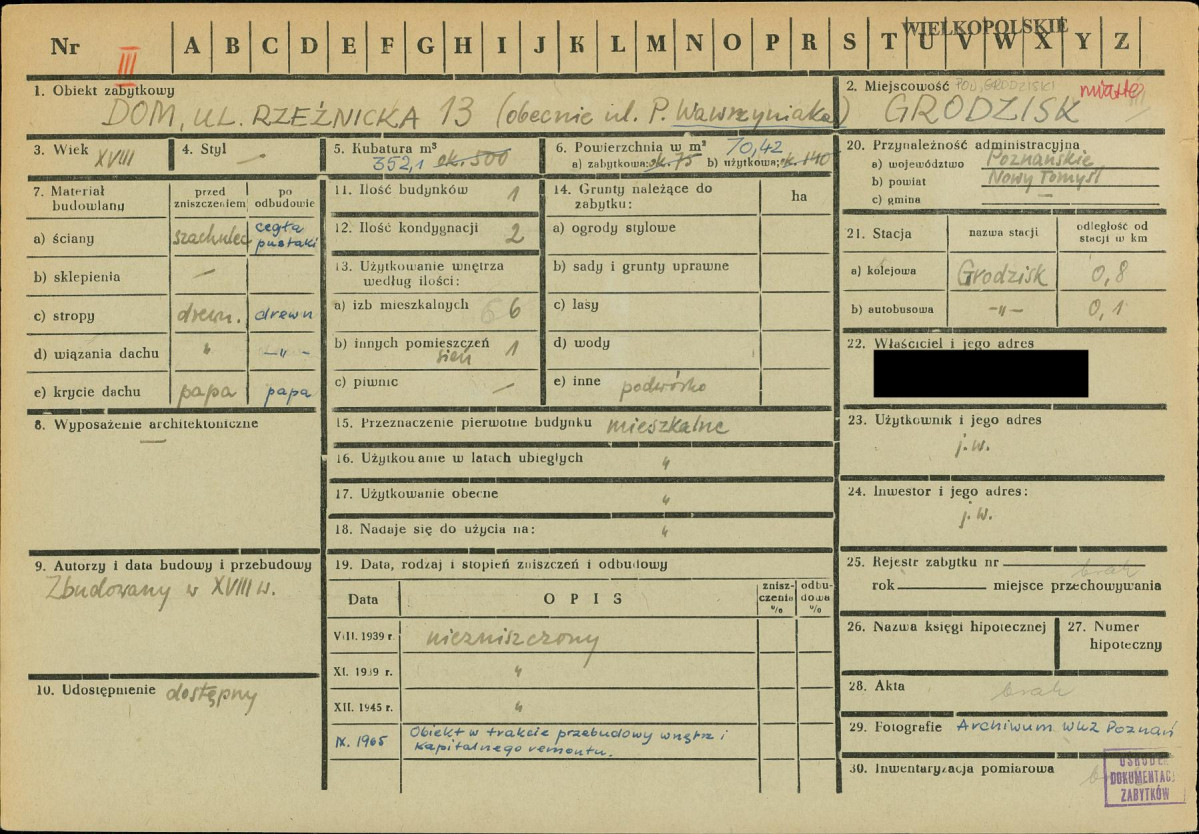 WIELKOPOLSKIE
Nr III A B C D E F G H I J K L M N O P R S T U V W X Y Z
1. Obiekt zabytkowy
DOM, UL. RZEŹNICKA 13 (obecnie ul. P. Wawrzyniaka)
2. Miejscowość POW. GRODZISKI miasto
GRODZISK
3. Wiek XVIII
4. Styl —
5. Kubatura m³
352,1 ok. 500
6. Powierzchnia w m² 70,42
a) zabytkowa: ok. 75 b) użytkowa: ok. 140
7. Materiał budowlany
przed zniszczeniem
po odbudowie
a) ściany szachulec cegła pustaki
b) sklepienia —
c) stropy drewn. drewn
d) wiązania dachu " —"—
e) krycie dachu papa papa
8. Wyposażenie architektoniczne
—
9. Autorzy i data budowy i przebudowy
Zbudowany w XVIII w.
10. Udostępnienie dostępny
11. Ilość budynków 1
12. Ilość kondygnacji 2
13. Użytkowanie wnętrza
według ilości:
a) izb mieszkalnych 6 6
b) innych pomieszczeń
sień 1
c) piwnic —
14. Grunty należące do
zabytku:
ha
a) ogrody stylowe
b) sady i grunty uprawne
c) lasy
d) wody
e) inne podwórko
15. Przeznaczenie pierwotne budynku mieszkalne
16. Użytkowanie w latach ubiegłych "
17. Użytkowanie obecne "
18. Nadaje się do użycia na: "
19. Data, rodzaj i stopień zniszczeń i odbudowy
Data
OPIS
zniszczenia %
odbudowa %
VIII. 1939 r. niezniszczony
XI. 1939 r. "
XII. 1945 r. "
IX. 1965 Obiekt w trakcie przebudowy wnętrz i
kapitalnego remontu.
20. Przynależność administracyjna
a) województwo Poznańskie
b) powiat Nowy Tomyśl
c) gmina —
21. Stacja
nazwa stacji
odległość od stacji w km
a) kolejowa Grodzisk 0,8
b) autobusowa —"— 0,1
22. Właściciel i jego adres
23. Użytkownik i jego adres
j.w.
24. Inwestor i jego adres:
j.w.
25. Rejestr zabytku nr
brak
rok miejsce przechowywania
26. Nazwa księgi hipotecznej
27. Numer
hipoteczny
28. Akta brak
29. Fotografie Archiwum WKZ Poznań
30. Inwentaryzacja pomiarowa
OŚRODEK
DOKUMENTACJI
ZABYTKÓW